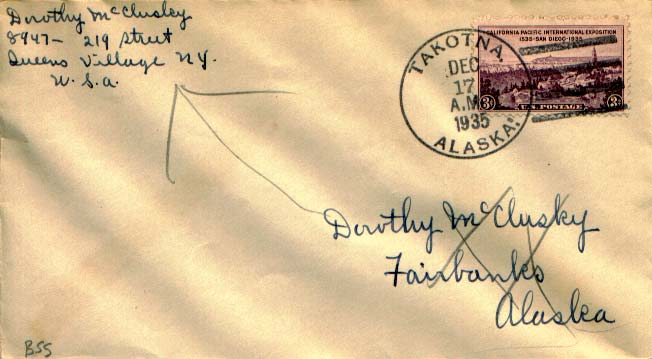 Dorothy McClusky
8947- 219 street
Queens Village N.Y.
U.S.a.
CALIFORNIA PACIFIC INTERNATIONAL EXPOSITION
1535-SAN DIEGO-1935
3¢ U.S. POSTAGE 3¢
TAKOTNA,
DEC
17
A.M.
1935
ALASKA.
Dorothy McClusky
Fairbanks
Alaska
B55